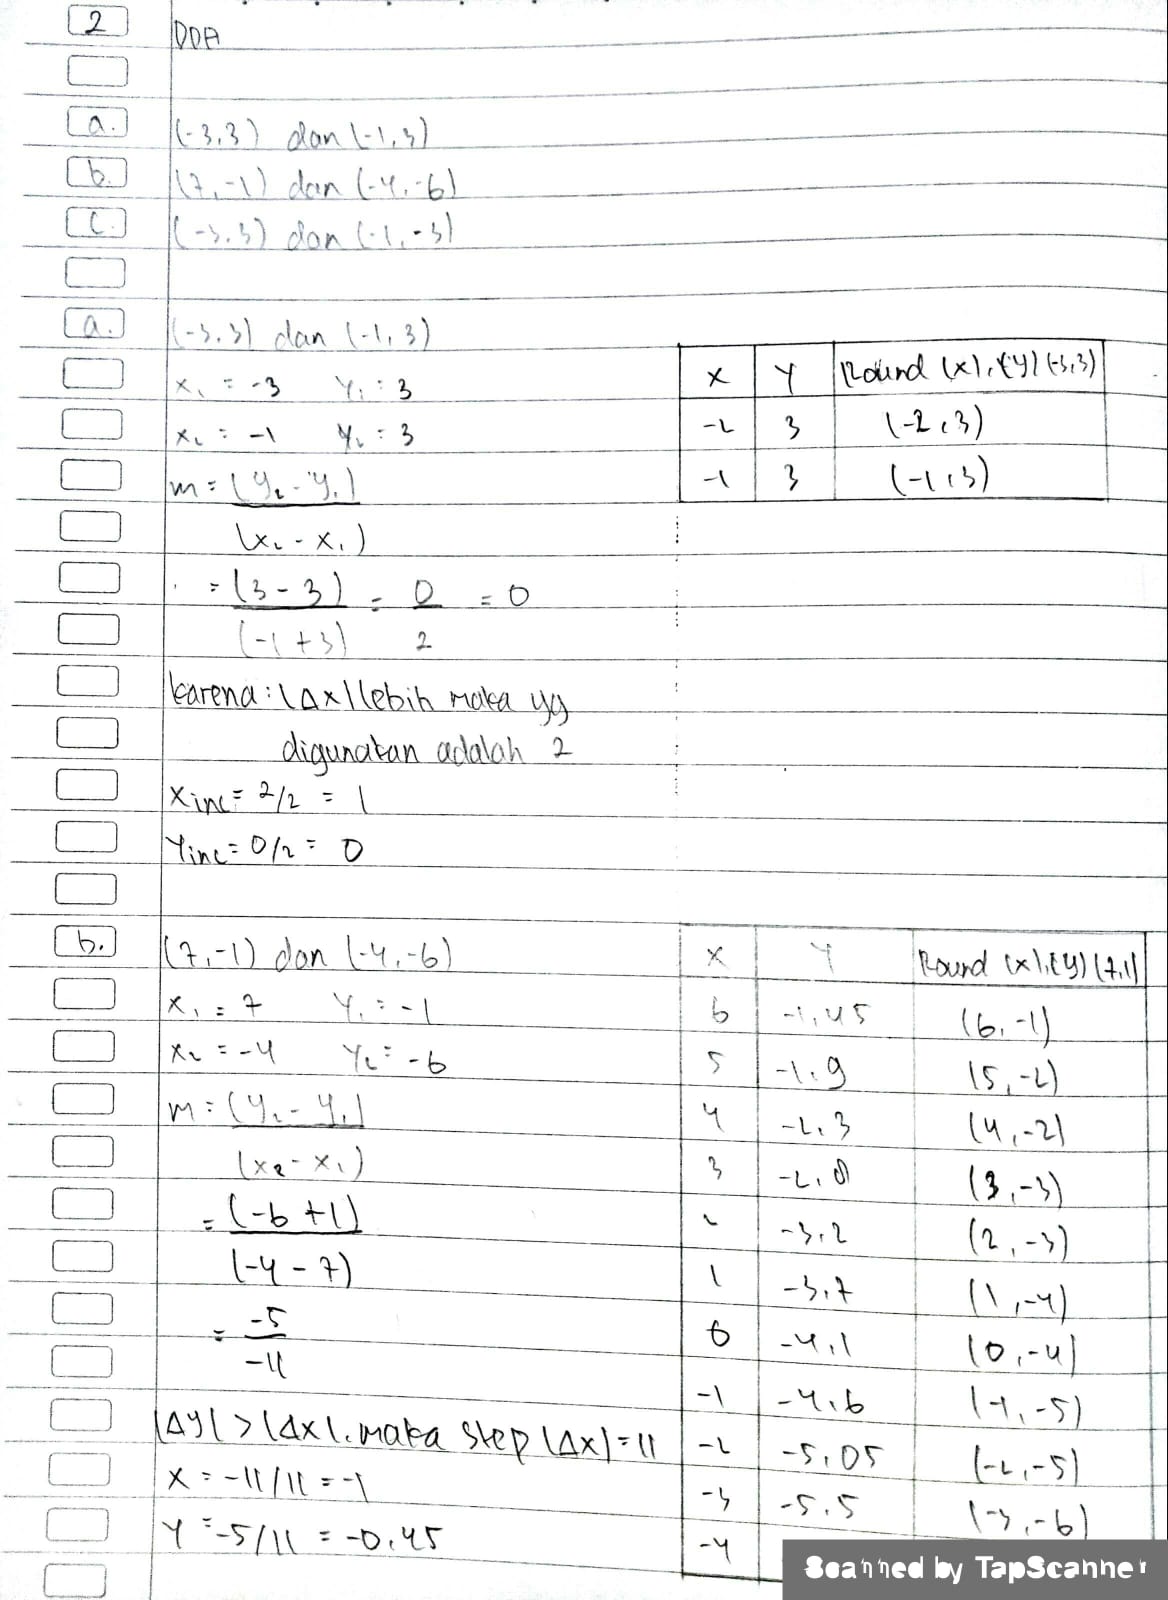 2 DDA
a. (-3,3) dan (-1,3)
b. (7,-1) dan (-4,-6)
c. (-3,3) dan (-1,-3)
a. (-3,3) dan (-1,3)
x₁ = -3 y₁ = 3
x₂ = -1 y₂ = 3
m = (y₂ - y₁)
(x₂ - x₁)
= (3 - 3) = 0 = 0
(-1 + 3) 2
karena : |Δx| lebih maka yg
digunakan adalah 2
Xinc = 2/2 = 1
Yinc = 0/2 = 0
x y Round (x),(y) (-3,3)
-2 3 (-2,3)
-1 3 (-1,3)
b. (7,-1) dan (-4,-6)
x₁ = 7 y₁ = -1
x₂ = -4 y₂ = -6
m = (y₂ - y₁)
(x₂ - x₁)
= (-6 + 1)
(-4 - 7)
= -5
-11
|Δy| > |Δx|, maka step |Δx| = 11
x = -11/11 = -1
y = -5/11 = -0,45
x y Round (x),(y) (7,1)
6 -1,45 (6,-1)
5 -1,9 (5,-2)
4 -2,3 (4,-2)
3 -2,8 (3,-3)
2 -3,2 (2,-3)
1 -3,7 (1,-4)
0 -4,1 (0,-4)
-1 -4,6 (-1,-5)
-2 -5,05 (-2,-5)
-3 -5,5 (-3,-6)
-4
Scanned by TapScanner